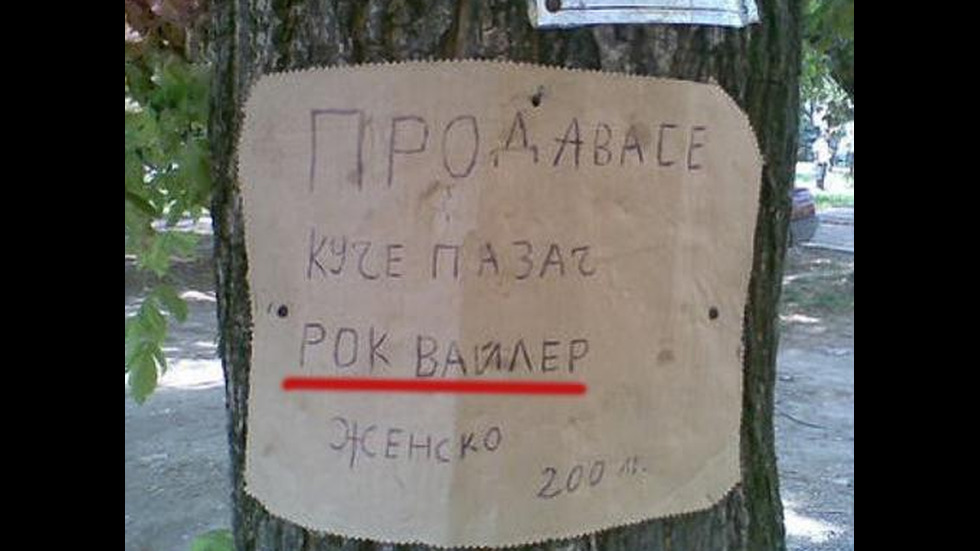 ПРОДАВАСЕ
КУЧЕ ПАЗАЧ
РОК ВАЙЛЕР
ЖЕНСКО
200